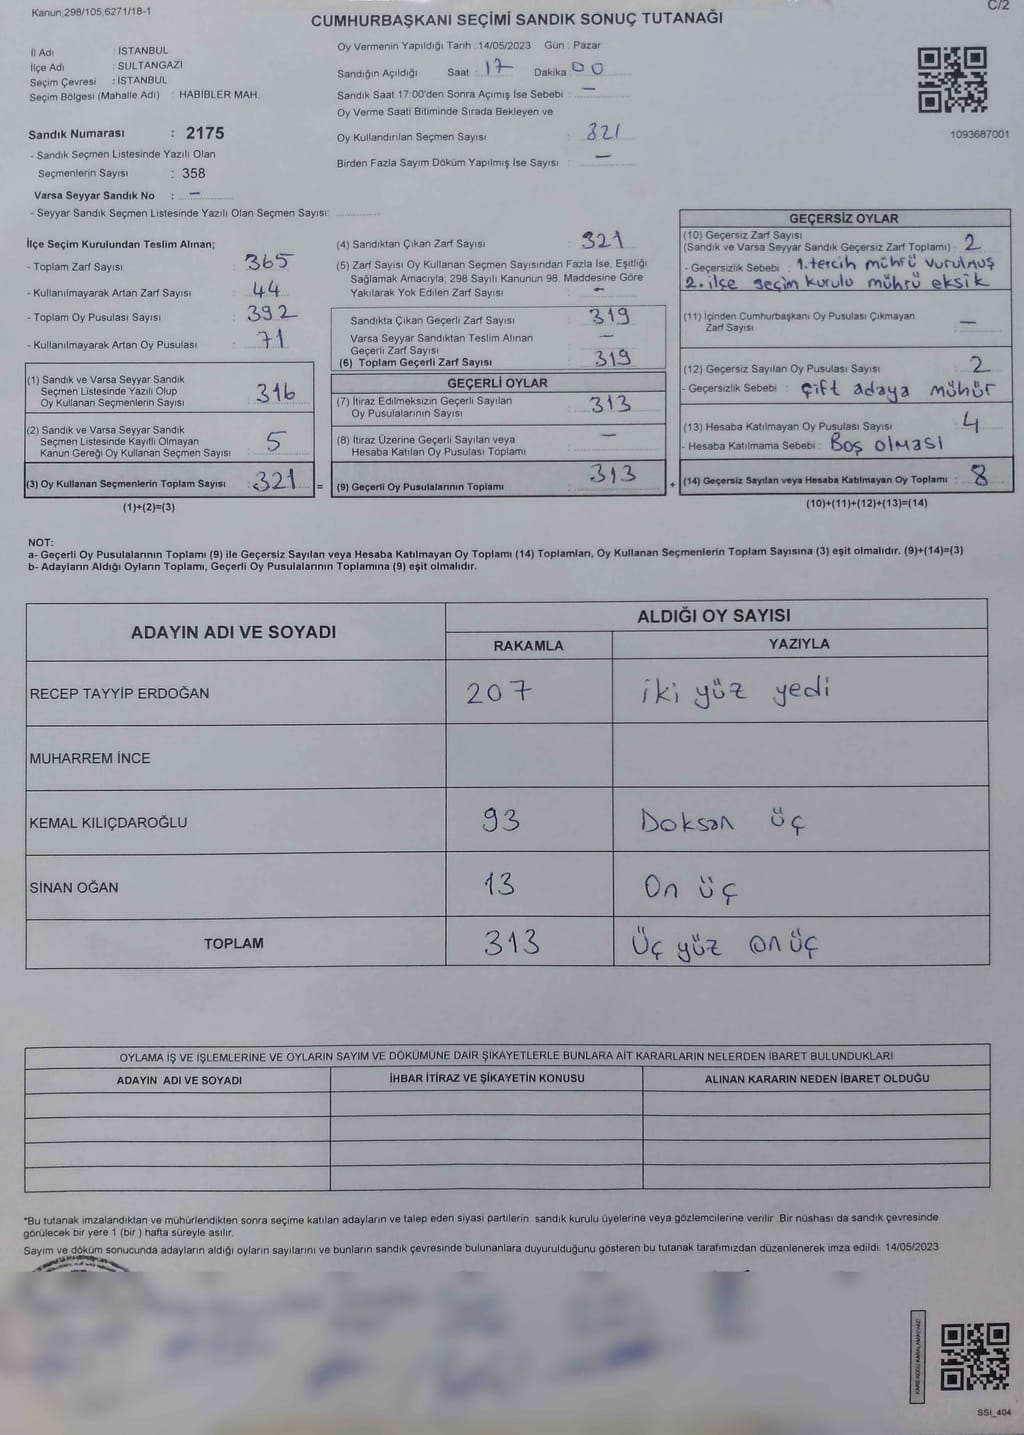 Kanun:298/105,6271/18-1
C/2
CUMHURBAŞKANI SEÇİMİ SANDIK SONUÇ TUTANAĞI
İl Adı : İSTANBUL
İlçe Adı : SULTANGAZİ
Seçim Çevresi : İSTANBUL
Seçim Bölgesi (Mahalle Adı) : HABİBLER MAH.
Sandık Numarası : 2175
- Sandık Seçmen Listesinde Yazılı Olan
Seçmenlerin Sayısı : 358
Varsa Seyyar Sandık No : -
- Seyyar Sandık Seçmen Listesinde Yazılı Olan Seçmen Sayısı:
Oy Vermenin Yapıldığı Tarih :14/05/2023 Gün : Pazar
Sandığın Açıldığı Saat : 17 Dakika : 00
Sandık Saat 17:00'den Sonra Açımış İse Sebebi : -
Oy Verme Saati Bitiminde Sırada Bekleyen ve
Oy Kullandırılan Seçmen Sayısı : 321
Birden Fazla Sayım Döküm Yapılmış İse Sayısı : -
1093687001
İlçe Seçim Kurulundan Teslim Alınan;
- Toplam Zarf Sayısı : 365
- Kullanılmayarak Artan Zarf Sayısı : 44
- Toplam Oy Pusulası Sayısı : 392
- Kullanılmayarak Artan Oy Pusulası : 71
(1) Sandık ve Varsa Seyyar Sandık
Seçmen Listesinde Yazılı Olup
Oy Kullanan Seçmenlerin Sayısı : 316
(2) Sandık ve Varsa Seyyar Sandık
Seçmen Listesinde Kayıtlı Olmayan
Kanun Gereği Oy Kullanan Seçmen Sayısı : 5
(3) Oy Kullanan Seçmenlerin Toplam Sayısı : 321 =
(1)+(2)=(3)
(4) Sandıktan Çıkan Zarf Sayısı : 321
(5) Zarf Sayısı Oy Kullanan Seçmen Sayısından Fazla İse, Eşitliği
Sağlamak Amacıyla; 298 Sayılı Kanunun 98. Maddesine Göre
Yakılarak Yok Edilen Zarf Sayısı : -
Sandıkta Çıkan Geçerli Zarf Sayısı : 319
Varsa Seyyar Sandıktan Teslim Alınan
Geçerli Zarf Sayısı : -
(6) Toplam Geçerli Zarf Sayısı : 319
GEÇERLİ OYLAR
(7) İtiraz Edilmeksizin Geçerli Sayılan
Oy Pusulalarının Sayısı : 313
(8) İtiraz Üzerine Geçerli Sayılan veya
Hesaba Katılan Oy Pusulası Toplamı : -
(9) Geçerli Oy Pusulalarının Toplamı : 313 +
GEÇERSİZ OYLAR
(10) Geçersiz Zarf Sayısı
(Sandık ve Varsa Seyyar Sandık Geçersiz Zarf Toplamı) : 2
- Geçersizlik Sebebi : 1. tercih mührü vurulmuş
2. ilçe seçim kurulu mührü eksik
(11) İçinden Cumhurbaşkanı Oy Pusulası Çıkmayan
Zarf Sayısı : -
(12) Geçersiz Sayılan Oy Pusulası Sayısı : 2
- Geçersizlik Sebebi : çift adaya mühür
(13) Hesaba Katılmayan Oy Pusulası Sayısı : 4
- Hesaba Katılmama Sebebi : Boş olması
(14) Geçersiz Sayılan veya Hesaba Katılmayan Oy Toplamı : 8
(10)+(11)+(12)+(13)=(14)
NOT:
a- Geçerli Oy Pusulalarının Toplamı (9) ile Geçersiz Sayılan veya Hesaba Katılmayan Oy Toplamı (14) Toplamları, Oy Kullanan Seçmenlerin Toplam Sayısına (3) eşit olmalıdır. (9)+(14)=(3)
b- Adayların Aldığı Oyların Toplamı, Geçerli Oy Pusulalarının Toplamına (9) eşit olmalıdır.
ADAYIN ADI VE SOYADI
ALDIĞI OY SAYISI
RAKAMLA YAZIYLA
RECEP TAYYİP ERDOĞAN 207 iki yüz yedi
MUHARREM İNCE
KEMAL KILIÇDAROĞLU 93 Doksan üç
SİNAN OĞAN 13 On üç
TOPLAM 313 Üç yüz on üç
OYLAMA İŞ VE İŞLEMLERİNE VE OYLARIN SAYIM VE DÖKÜMÜNE DAİR ŞİKAYETLERLE BUNLARA AİT KARARLARIN NELERDEN İBARET BULUNDUKLARI
ADAYIN ADI VE SOYADI İHBAR İTİRAZ VE ŞİKAYETİN KONUSU ALINAN KARARIN NEDEN İBARET OLDUĞU
*Bu tutanak imzalandıktan ve mühürlendikten sonra seçime katılan adayların ve talep eden siyasi partilerin sandık kurulu üyelerine veya gözlemcilerine verilir .Bir nüshası da sandık çevresinde
görülecek bir yere 1 (bir ) hafta süreyle asılır.
Sayım ve döküm sonucunda adayların aldığı oyların sayılarını ve bunların sandık çevresinde bulunanlara duyurulduğunu gösteren bu tutanak tarafımızdan düzenlenerek imza edildi. 14/05/2023
KARE KODU KARALAMAYINIZ!
SSİ_404